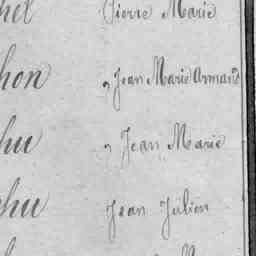 hel Pierre Marie
hon Jean Marie Armand
hu Jean Marie
hu Jean Julien